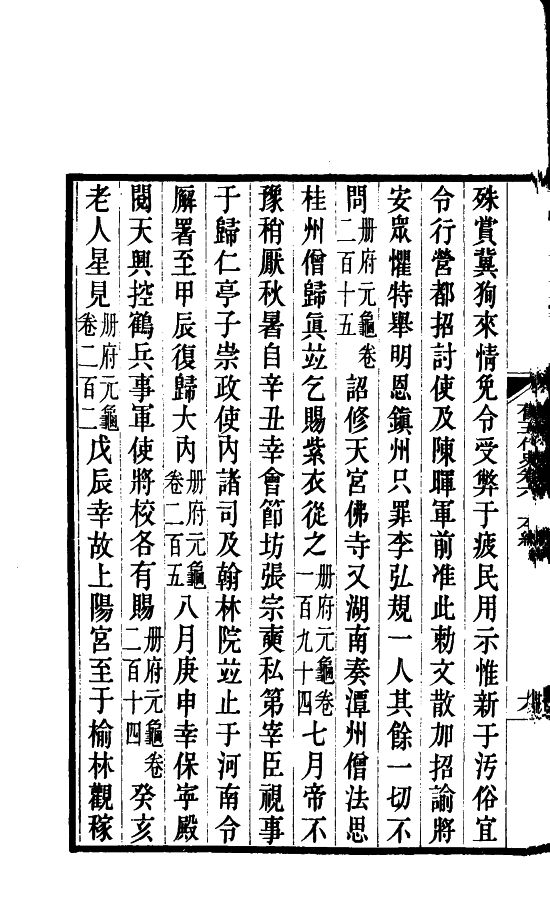 殊賞冀狥來情免令受弊于疲民用示惟新于汚俗宜
令行營都招討使及陳暉軍前准此勅文散加招諭將
安眾懼特舉明恩鎭州只罪李弘規一人其餘一切不
問册府元龜卷二百十五詔修天宮佛寺又湖南奏潭州僧法思
桂州僧歸眞竝乞賜紫衣從之册府元龜卷一百九十四七月帝不
豫稍厭秋暑自辛丑幸會節坊張宗奭私第宰臣視事
于歸仁亭子崇政使內諸司及翰林院竝止于河南令
廨署至甲辰復歸大內册府元龜卷二百五八月庚申幸保寧殿
閱天興控鶴兵事軍使將校各有賜册府元龜卷二百十四癸亥
老人星見册府元龜卷二百二戊辰幸故上陽宮至于榆林觀稼